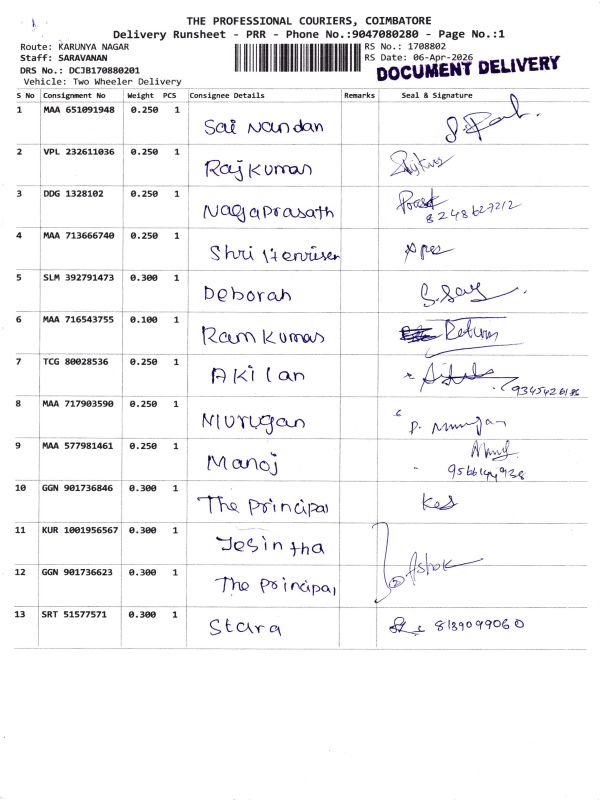 THE PROFESSIONAL COURIERS, COIMBATORE
Delivery Runsheet - PRR - Phone No.:9047080280 - Page No.:1
Route: KARUNYA NAGAR
RS No.: 1708802
Staff: SARAVANAN
RS Date: 06-Apr-2026
DRS No.: DCJB170880201
DOCUMENT DELIVERY
Vehicle: Two Wheeler Delivery
S No Consignment No Weight PCS Consignee Details Remarks Seal & Signature
1 MAA 651091948 0.250 1 Sai Nandan
2 VPL 232611036 0.250 1 Rajkumar
3 DDG 1328102 0.250 1 Nagaprasath
8248627212
4 MAA 713666740 0.250 1 Shri
5 SLM 392791473 0.300 1 Deborah
6 MAA 716543755 0.100 1 Ram kumar Return
7 TCG 80028536 0.250 1 Akilan
8 MAA 717903590 0.250 1 Murugan P. Murugan
9 MAA 577981461 0.250 1 Manoj
9566144938
10 GGN 901736846 0.300 1 The principal
11 KUR 1001956567 0.300 1 Jesintha
Ashok
12 GGN 901736623 0.300 1 The principal
13 SRT 51577571 0.300 1 Stara 8139099060